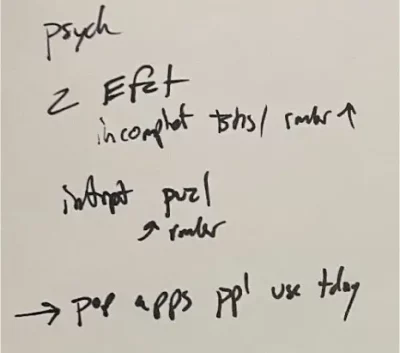 psych
Z Efct
incomplet tsks/ rmbr ↑
intrpt puzl
↗ rmbr
→ pop apps ppl use tday